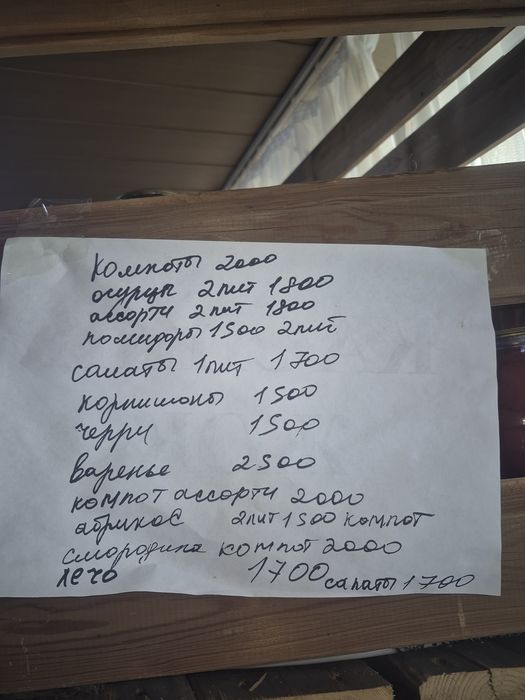 Компоты 2000
огурцы 2лит 1800
ассорти 2лит 1800
помидоры 1500 2лит
салаты 1лит 1700
корнишоны 1500
черри 1500
варенье 2500
компот ассорти 2000
абрикос 2лит 1500 компот
смородина компот 2000
лечо 1700 салаты 1700